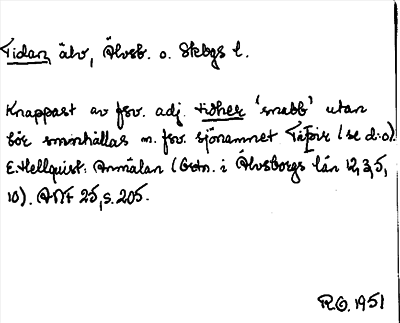 Tidan, älv, Älvsb. o. Skbgs l.
Knappast av fsv. adj. tidher 'snabb' utan
bör sammanhållas m. fsv. sjönamnet (se d:o).
E. Hellquist: Anmälan (Ortn. i Älvsborgs län 12,3,5,
10). ANF 25, s. 205.
R.O. 1951